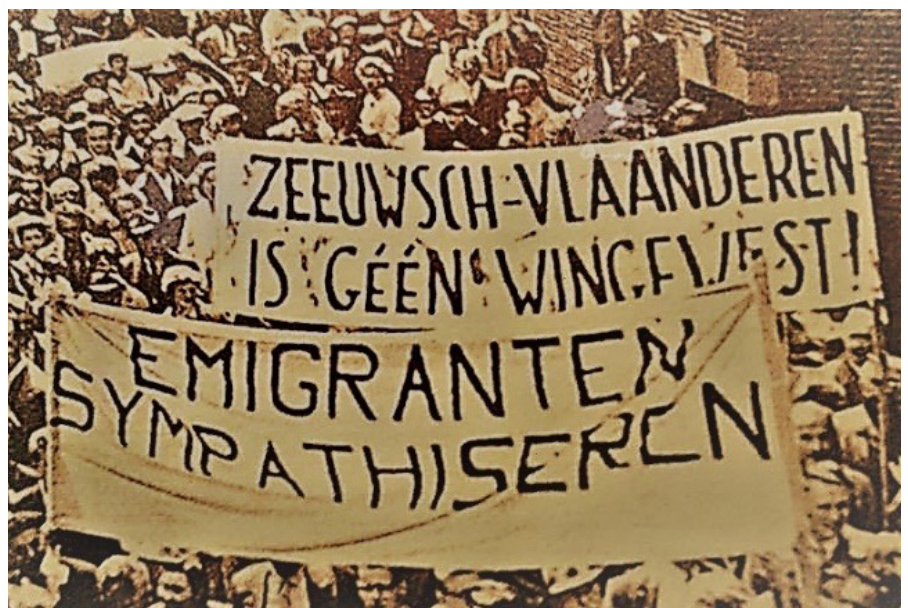 ZEEUWSCH-VLAANDEREN
IS GÉÉN WINGEWEST!
EMIGRANTEN
SYMPATHISEREN